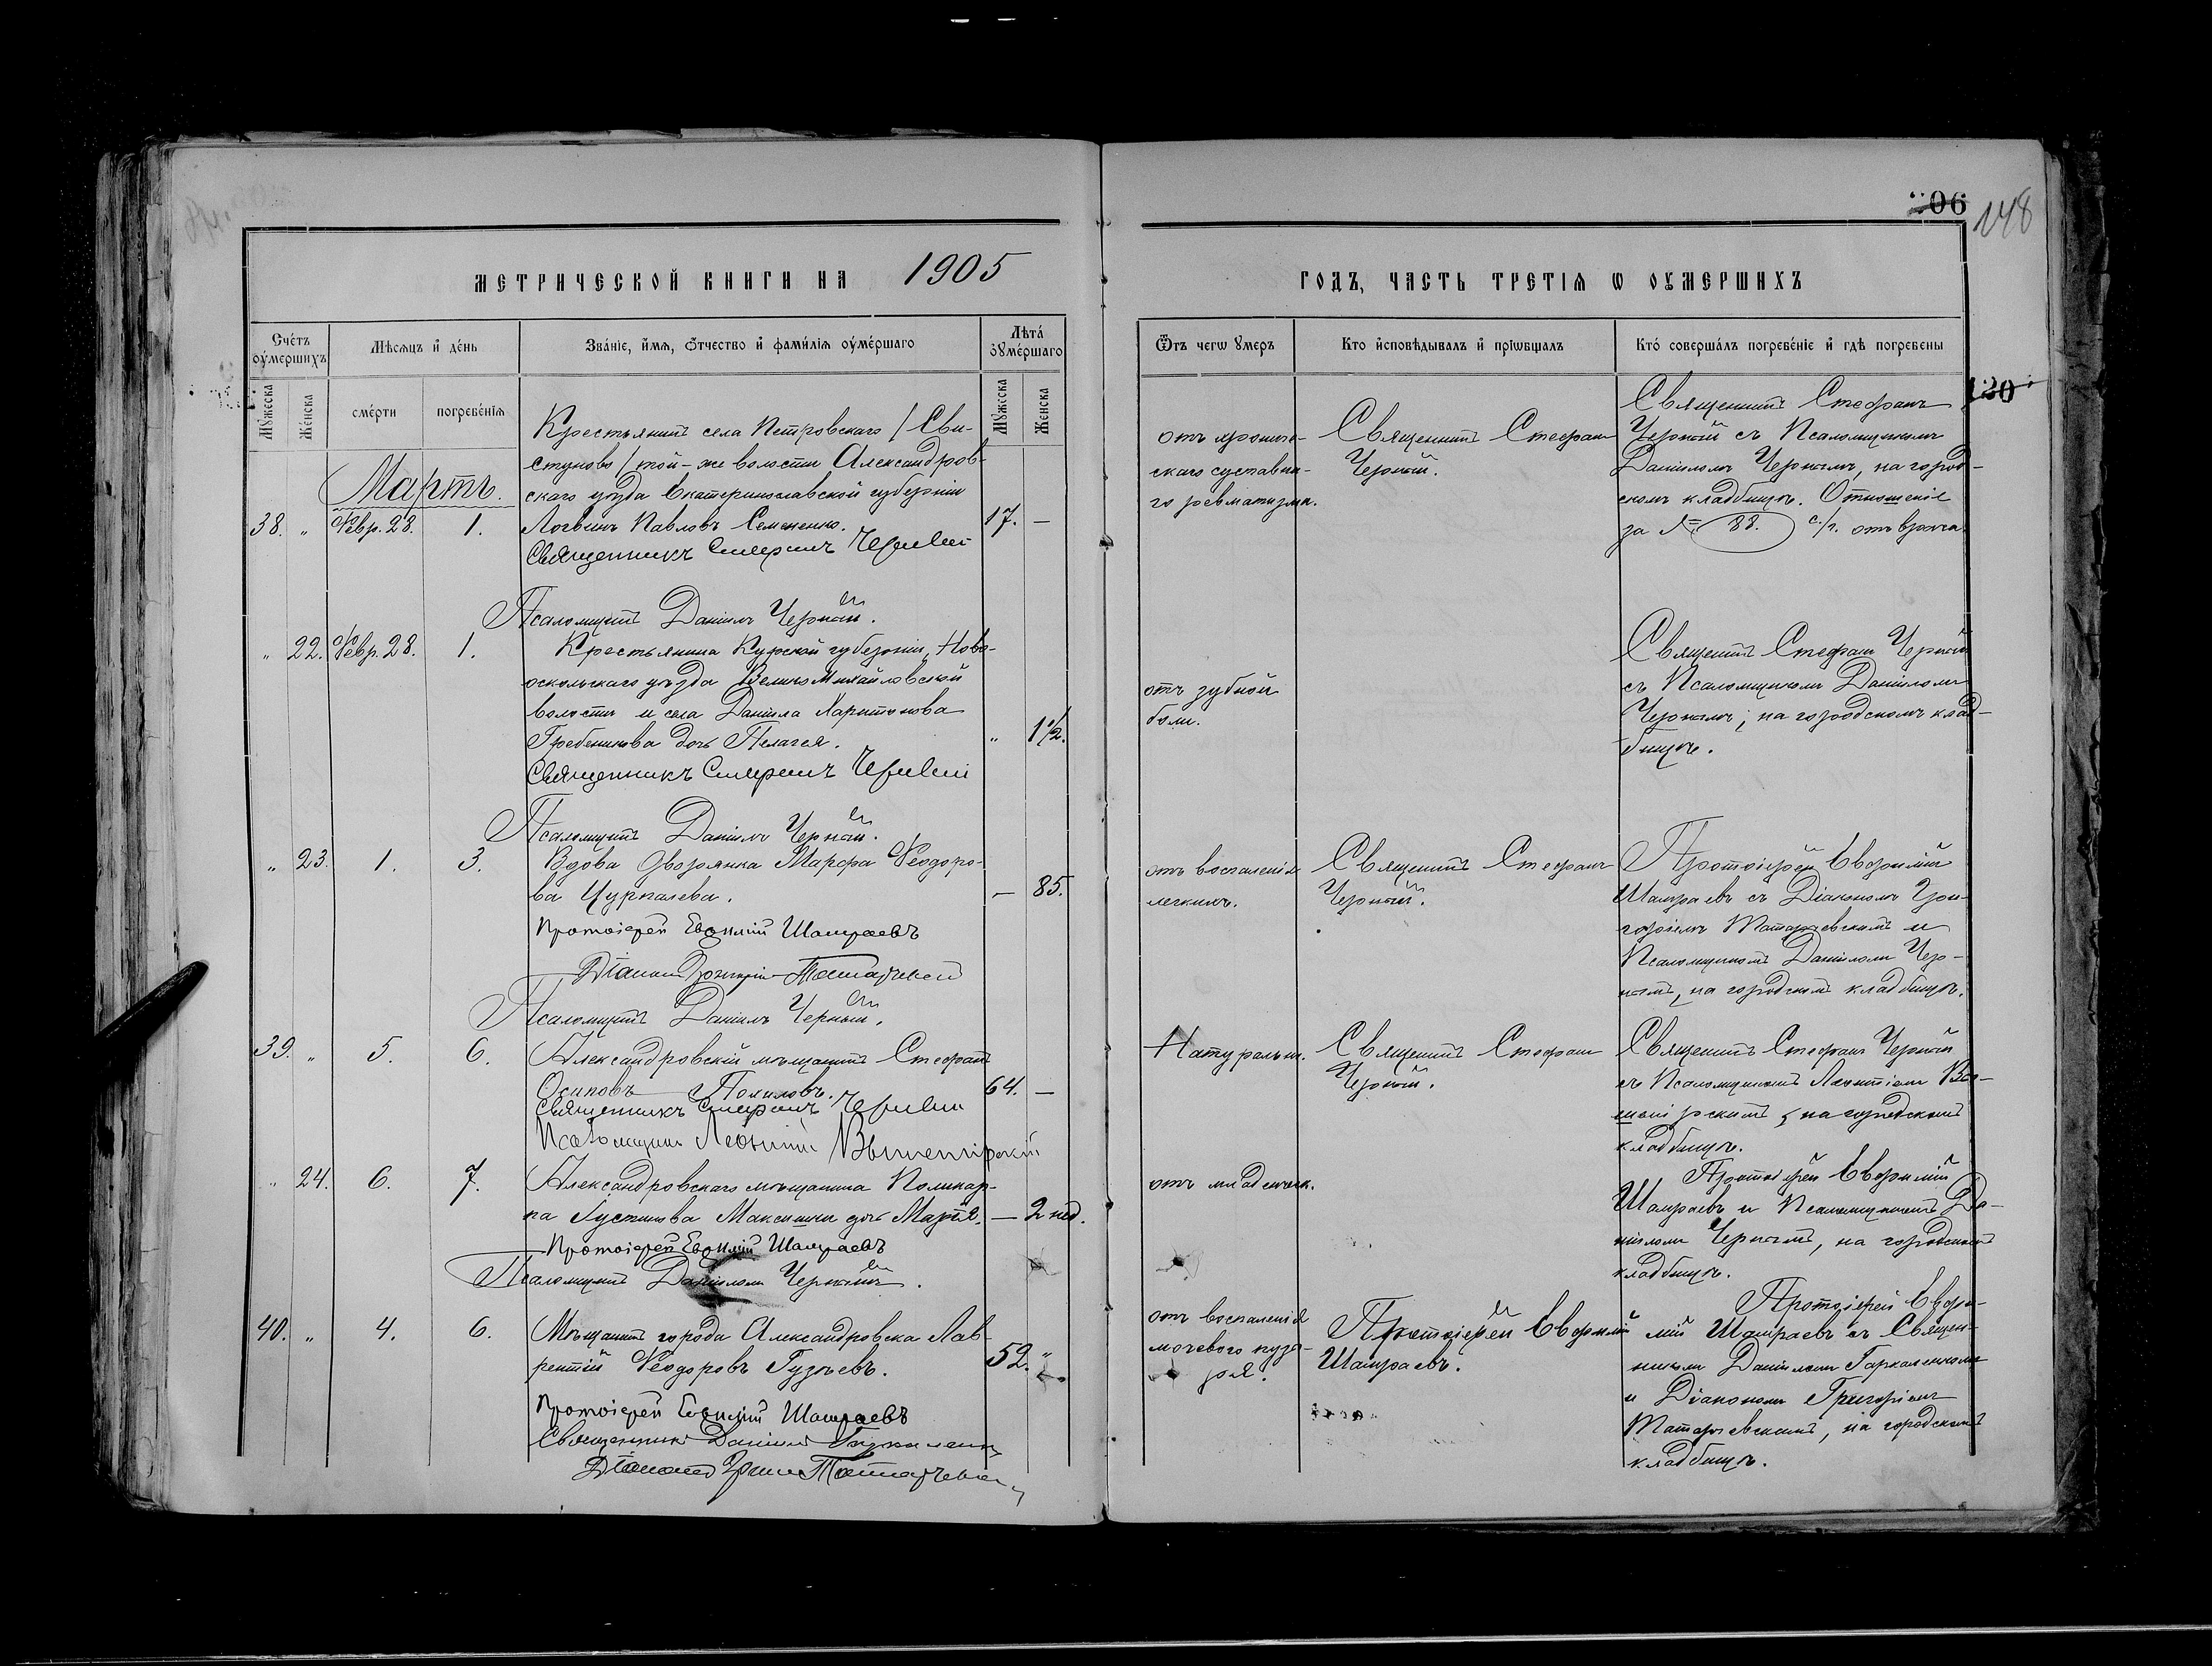 206
148
МЕТРИЧЕСКОЙ КНИГИ НА 1905
ГОДЪ, ЧАСТЬ ТРЕТІѦ Ѡ ОУМЕРШИХЪ
Сче́тъ оу҆мершихъ
Мѣсѧцъ и҆ де́нь
Зва́нїе, и҆́мѧ, ѻ҆́тчество и҆ фами́лїѧ оу҆ме́ршаго
Лѣта̀ оу҆ме́ршаго
Мꙋ́жеска
Же́нска
сме́рти
погребе́нїѧ
Мꙋ́жеска
Же́нска
Ѿъ чегѡ ᲂумеръ
Кто и҆сповѣ́дывалъ и҆ прїѡбщалъ
Кто́ соверша́лъ погребе́нїе и҆ гдѣ погребены
120
Мартъ.
38. „ Февр. 28. 1.
Крестьянинъ села Петровскаго / Сви-
стуново / той-же волости Александров-
скаго уѣзда Екатеринославской губерніи
Логвинъ Павловъ Семененко. 17. —
Священникъ Стефанъ Черный
Псаломщикъ Даніилъ Черный.
отъ хрониче-
скаго суставна-
го ревматизма.
Священникъ Стефанъ
Черный.
Священникъ Стефанъ
Черный съ Псаломщикомъ
Даніиломъ Чернымъ, на город-
скомъ кладбищѣ. Отношеніе
за № 88. с/г. отъ врача.
„ 22. Февр. 28. 1.
Крестьянина Курской губерніи, Ново-
оскольскаго уѣзда Велико Михайловской
волости и села Даніила Харитонова
Гребеникова дочь Пелагея. „ 1 1/2.
Священникъ Стефанъ Черный
Псаломщикъ Даніилъ Черный.
отъ зубной
боли.
Священникъ Стефанъ Черный
съ Псаломщикомъ Даніиломъ
Чернымъ, на городскомъ клад-
бищѣ.
„ 23. 1. 3.
Вдова дворянка Марфа Ѳеодоро-
ва Чурпалева. — 85.
Протоіерей Евфимій Шамраевъ
Діаконъ Григорій
Псаломщикъ Даніилъ Черный.
отъ воспаленія
легкихъ.
Священникъ Стефанъ
Черный.
Протоіерей Евфимій
Шамраевъ съ Діакономъ Гри-
горіемъ и
Псаломщикомъ Даніиломъ Чер-
нымъ, на городскомъ кладбищѣ.
39. „ 5. 6.
Александровскій мѣщанинъ Стефанъ
Осиповъ 64. —
Священникъ Стефанъ Черный
Псаломщикъ Леонтій
Натуральн.
Священникъ Стефанъ
Черный.
Священникъ Стефанъ Черный
съ Псаломщикомъ Леонтіемъ
на городскомъ
кладбищѣ.
„ 24. 6. 7.
Александровскаго мѣщанина Поликар-
па Іустинова дочь Марія. — 2 нед.
Протоіерей Евфимій Шамраевъ
Псаломщикъ Даніиломъ Черный.
отъ младенческ.
Протоіерей Евфимій
Шамраевъ и Псаломщикомъ Да-
ніиломъ Чернымъ, на городскомъ
кладбищѣ.
40. „ 4. 6.
Мѣщанинъ города Александровска Лав-
рентій Ѳеодоровъ Гузѣевъ. 52. „
Протоіерей Евфимій Шамраевъ
Священникъ Даніилъ Гаркаленко
Діаконъ
отъ воспаленія
мочевого пузы-
ря.
Протоіерей Евфимій
Шамраевъ.
Протоіерей Евфи-
мій Шамраевъ съ Священ-
никомъ Даніиломъ Гаркаленкомъ
и Діакономъ Григоріемъ
на городскомъ
кладбищѣ.